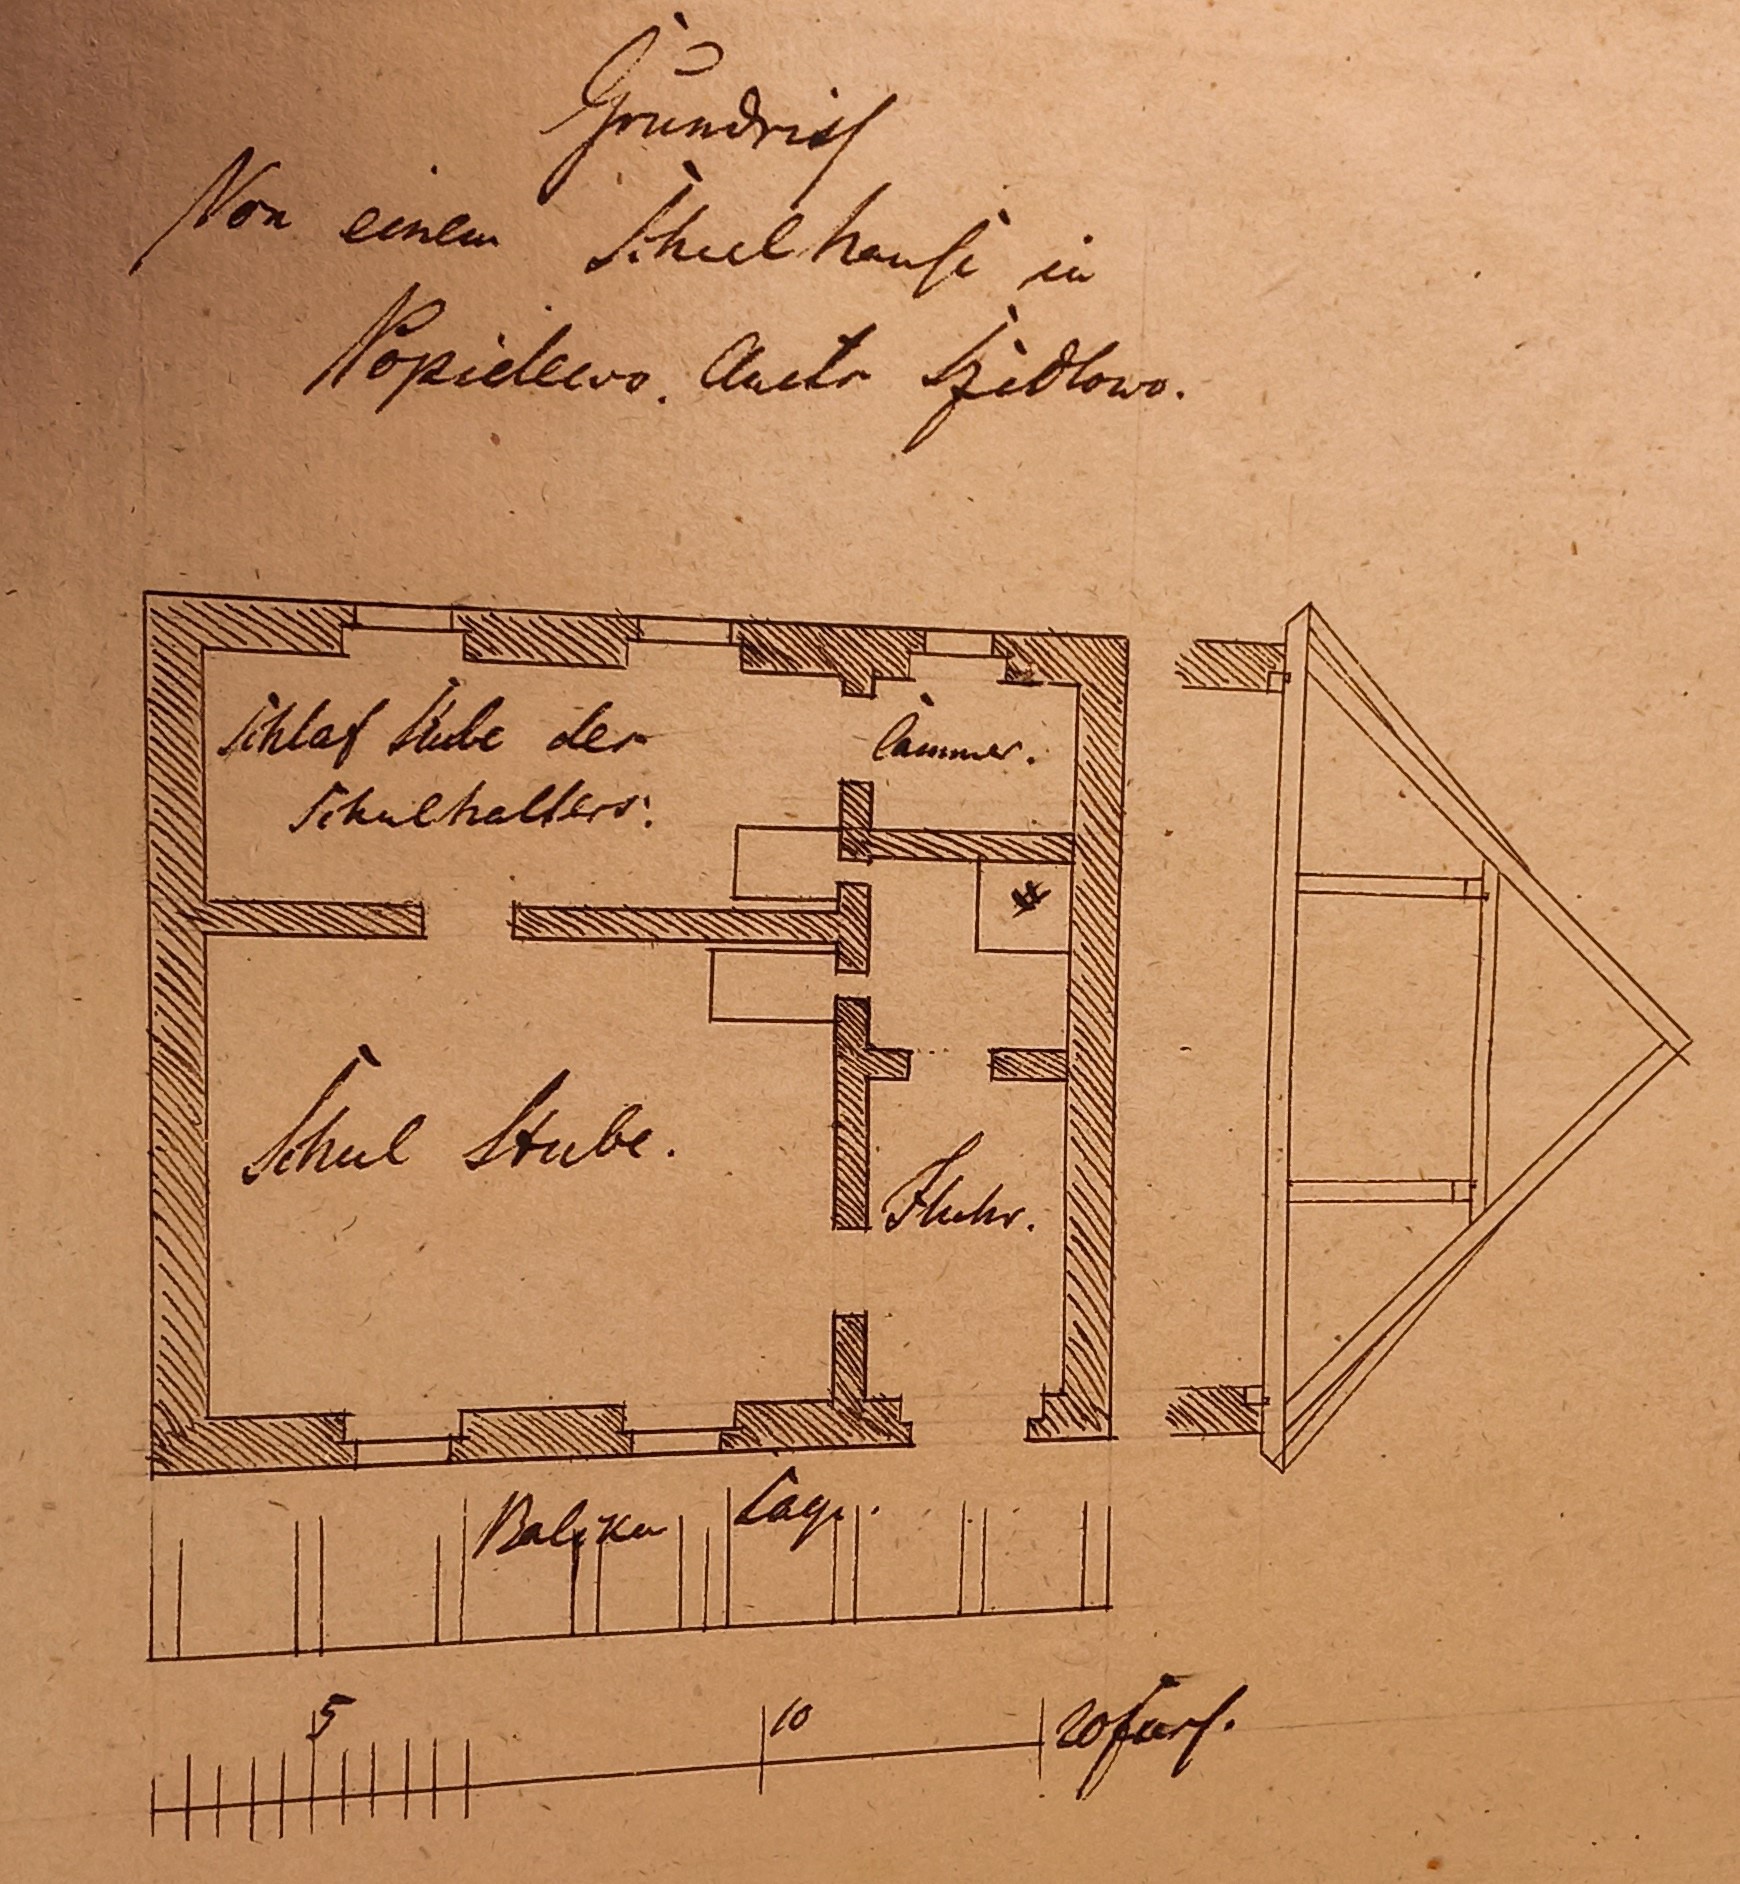 Grundriß
Von einem Schulhause in
Popielewo. Amts Szidlowo.
Schlaf Stube der
Schulhalters.
Cammer.
Schul Stube.
Fluhr.
Balken Lage.
5
10
20 fuß.